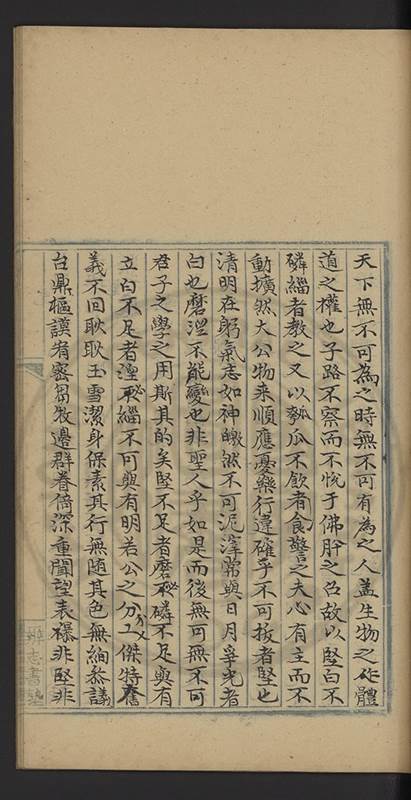 天下無不可為之時無不可有為之人蓋生物之作體
道之權也子路不察而不悅于佛肸之召故以堅白不
磷緇者教之又以匏瓜不飲者食警之夫心有主而不
動擴然大公物来順應憂樂行違確乎不可拔者堅也
清明在躬氣志如神皦然不可泥滓常與日月爭光者
白也磨涅不能變也非聖人乎如是而後無可無不可
君子之學之用斯其的矣堅不足者磨必磷不足與有
立白不足者涅必緇不可與有明若公之分工傑特奮
義不回耿耿玉雪潔身保素其行無随其色無絢叅議
台鼎樞謨宥密芻牧邊群眷倚深重聞望表襮非堅非
志書塾